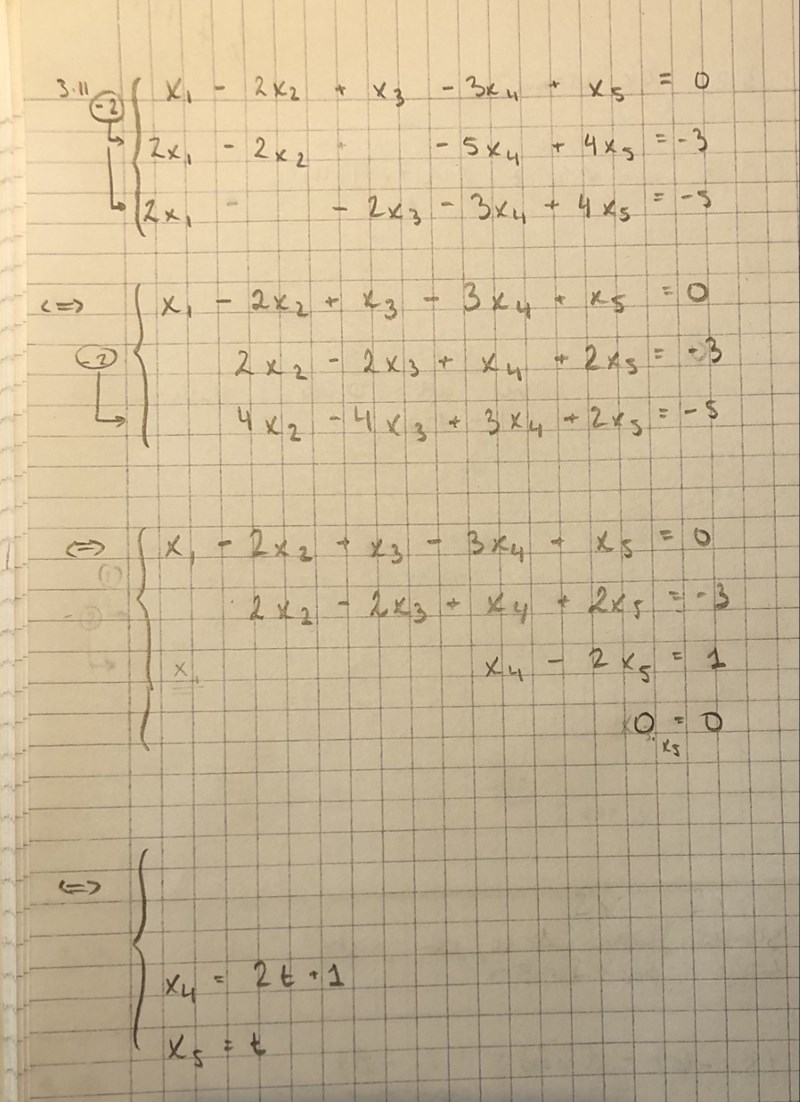 3.11 x₁ - 2x₂ + x₃ - 3x₄ + x₅ = 0
-2 2x₁ - 2x₂ - 5x₄ + 4x₅ = -3
2x₁ - - 2x₃ - 3x₄ + 4x₅ = -5
<=> x₁ - 2x₂ + x₃ - 3x₄ + x₅ = 0
-2 2x₂ - 2x₃ + x₄ + 2x₅ = -3
4x₂ - 4x₃ + 3x₄ + 2x₅ = -5
<=> x₁ - 2x₂ + x₃ - 3x₄ + x₅ = 0
2x₂ - 2x₃ + x₄ + 2x₅ = -3
x₄ - 2x₅ = 1
0 = 0
x₅
<=>
x₄ = 2t + 1
x₅ = t